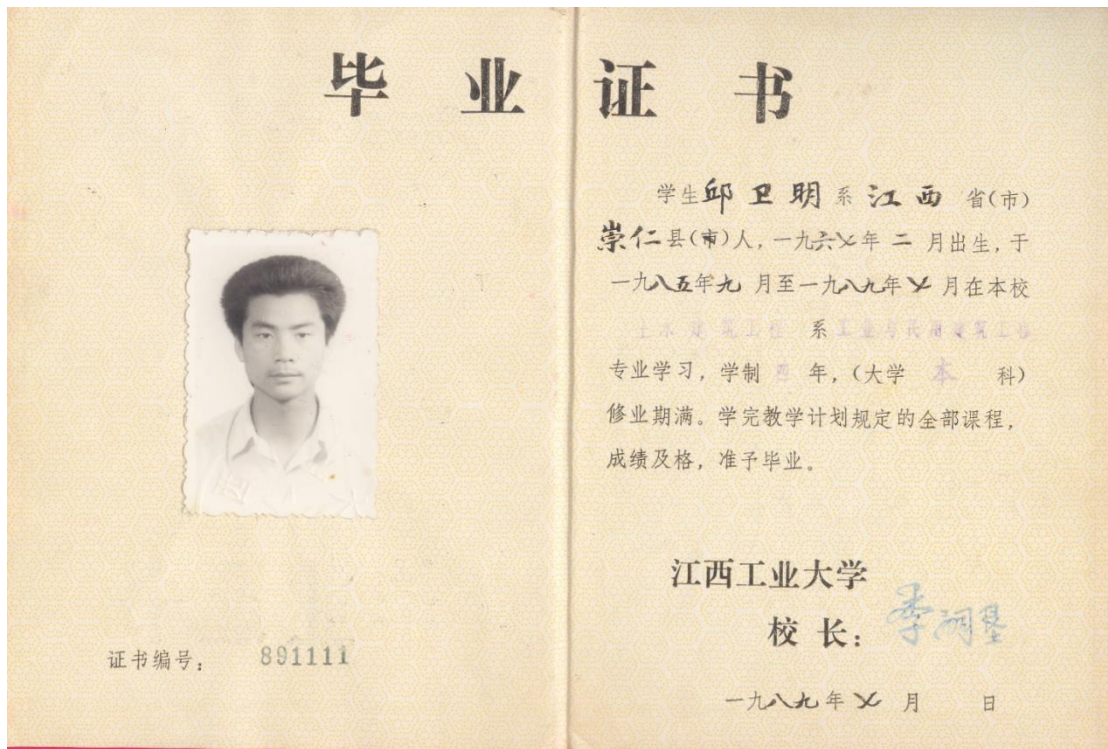 毕业证书
学生邱卫明系江西省(市)
崇仁县(市)人，一九六七年二月出生，于
一九八五年九月至一九八九年七月在本校
土木建筑工程系工业与民用建筑工程
专业学习，学制四年，(大学本科)
修业期满。学完教学计划规定的全部课程，
成绩及格，准予毕业。
江西工业大学
校长：
证书编号：891111
一九八九年七月 日